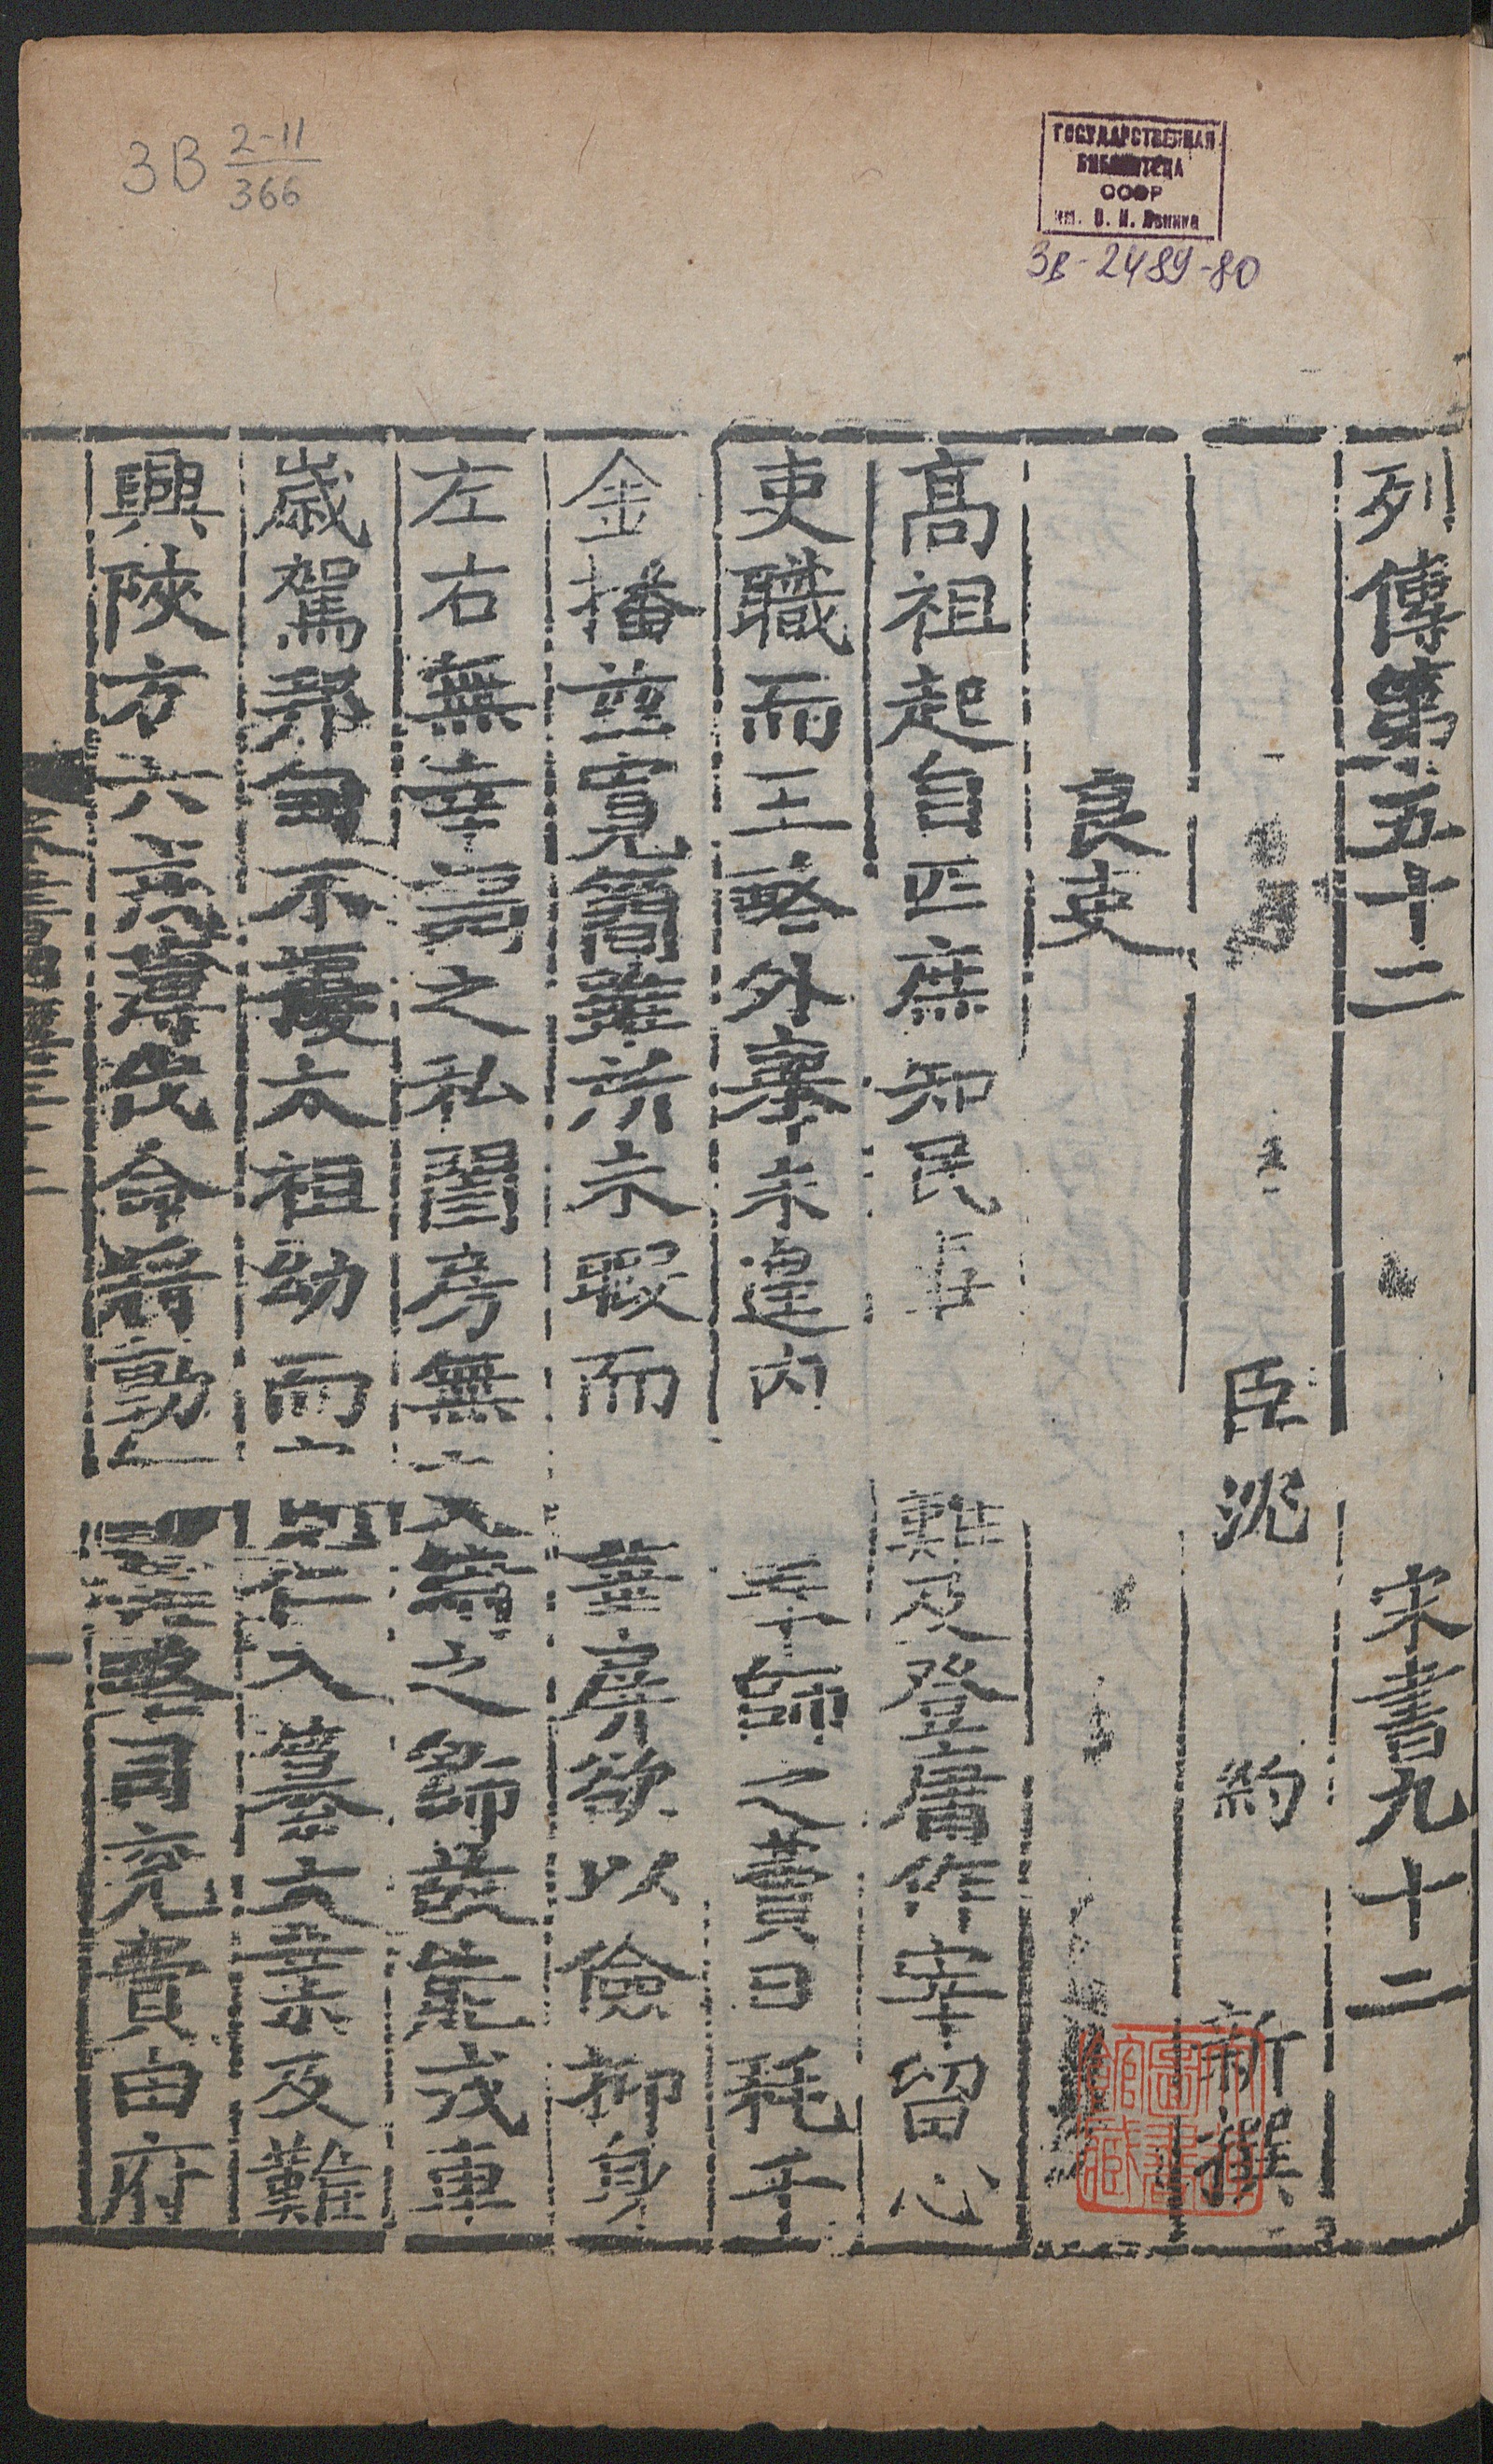 3B 2-11
366
ГОСУДАРСТВЕННАЯ
БИБЛИОТЕКА
СССР
им. В. И. Ленина
3В-2489-80
列傳第五十二 宋書九十二
臣沈 約 新撰
良吏
高祖起自匹庶知民事難及登庸作宰留心
吏職而王略外舉未遑内奉師之費日耗千
金播茲寬簡雖所未暇而華屏欲以儉抑身
左右無幸謁之私閨房無文綺之飾故能戎車
歲駕邦甸不擾太祖幼而仁入纂大業及難
興陝方六戎薄伐命將動略司兖費由府
圖書館藏